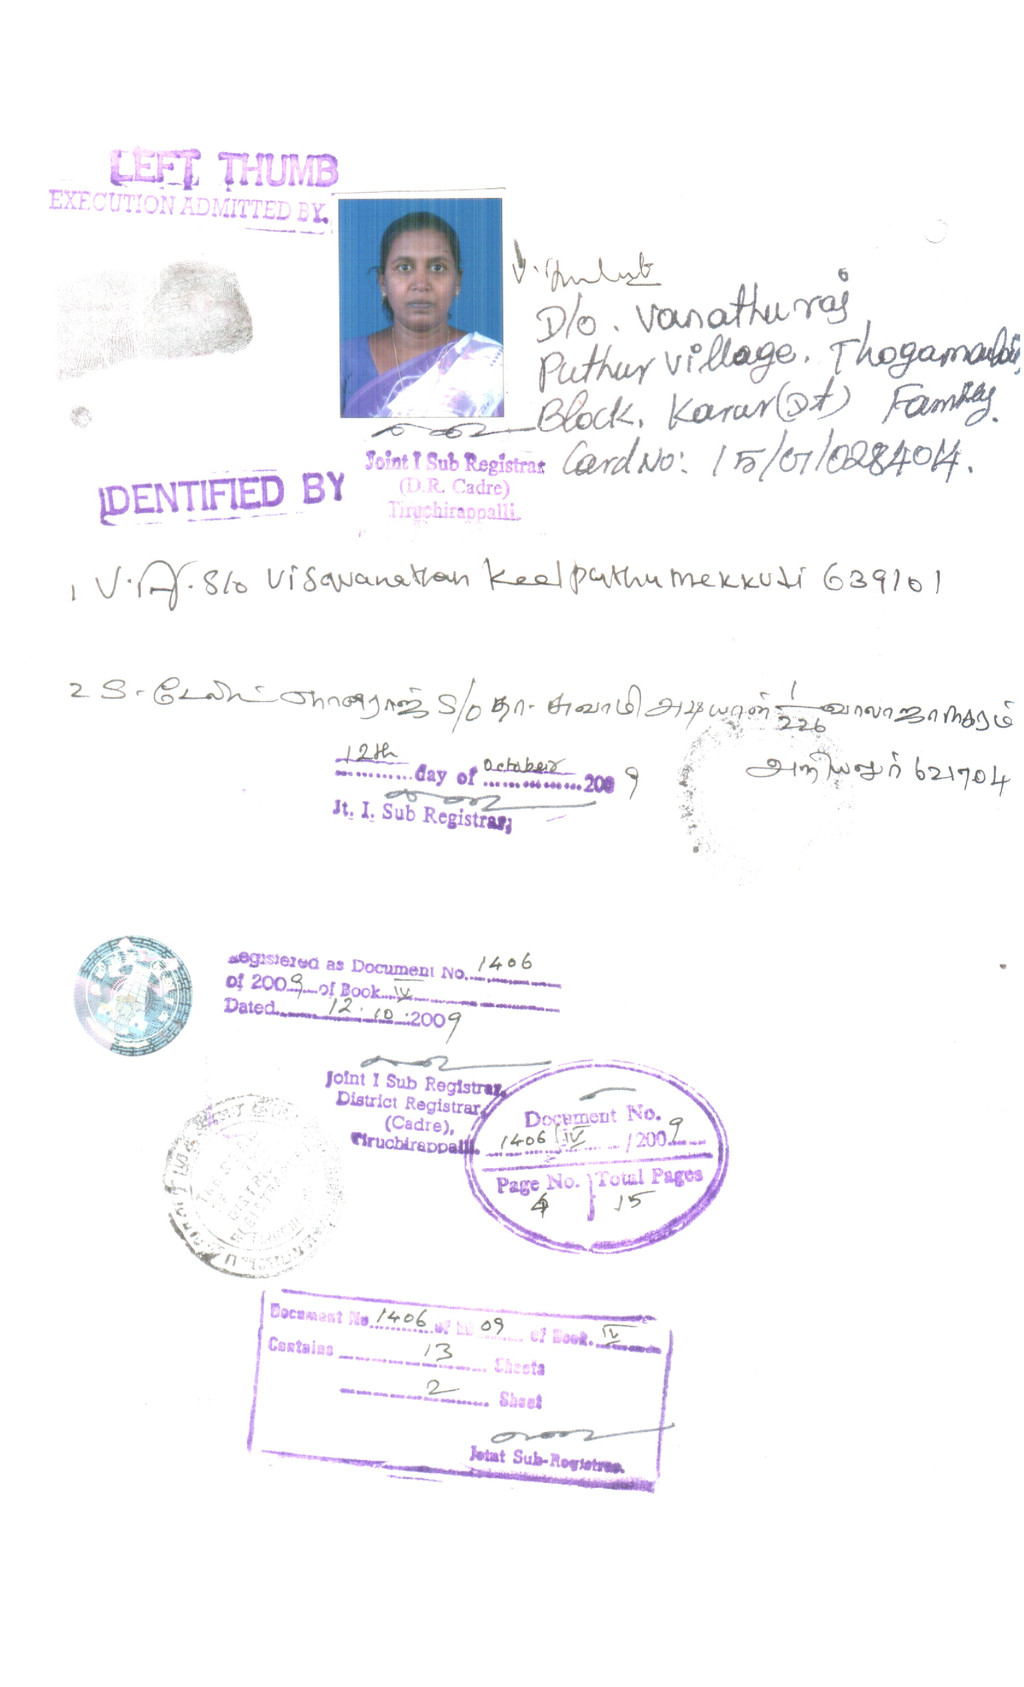 LEFT THUMB
EXECUTION ADMITTED BY.
D/o. Vanathuraj
Puthur Village. Thogamalai,
Block. Karur(Dt) Family
Card No: 15/07/0284014.
Joint I Sub Registrar
(D.R. Cadre)
Tiruchirappalli.
IDENTIFIED BY
1 V. S/o Viswanathan Keelputhumekkudi 639101
2 S. டேவிட் ஞானராஜ் S/o தா. சுவாமி அடியான் 1/226 வாலாஜாநகரம்
அரியலூர் 621704
12th day of October 2009
Jt. I. Sub Registrar,
Registered as Document No. 1406
of 2009 of Book IV
Dated 12.10.2009
Joint I Sub Registrar,
District Registrar,
(Cadre),
Tiruchirappalli.
Document No.
1406/IV/2009
Page No. Total Pages
4 15
Document No 1406 of 2009 of Book. IV
Contains 13 Sheets
2 Sheet
Joint Sub-Registrar.